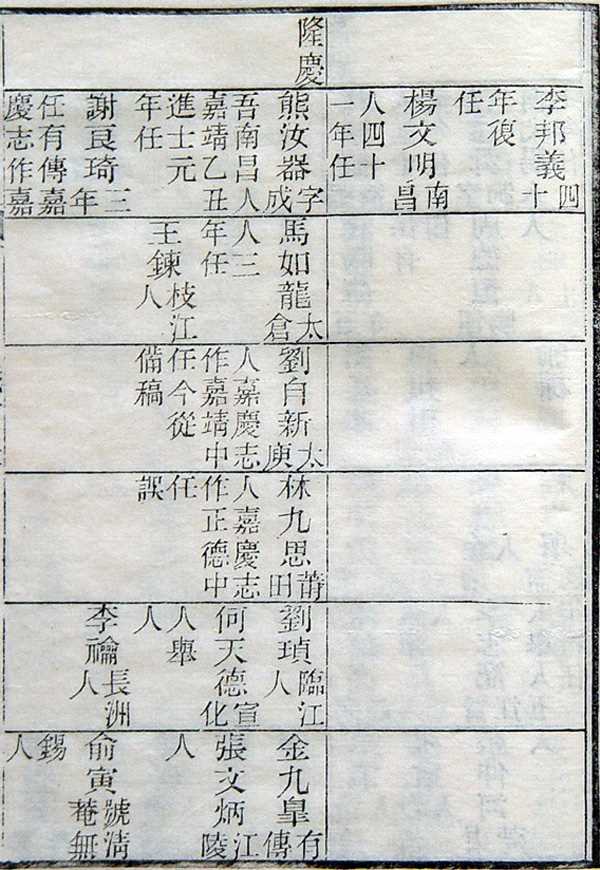 隆慶
李邦義四十
年復
任
楊文明南昌
人四十
一年任
熊汝器字成
吾南昌人
嘉靖乙丑
進士元
年任
謝良琦三年
任有傳嘉
慶志作嘉
馬如龍太倉
人三
年任
王鍊枝江人
劉自新太庾
人嘉慶志
作嘉靖中
任今從
備稿
林九思莆田
人嘉慶志
作正德中
任
誤
劉瑱臨江人
何天德宣化
人舉
人
李禴長洲人
金九皐有傳
張文炳江陵
人
俞寅號清菴無
錫
人